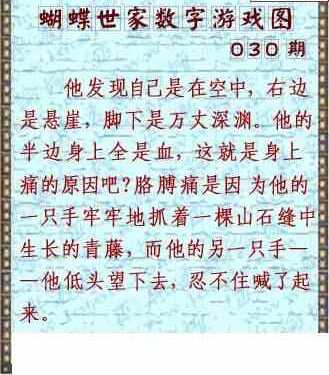 蝴蝶世家数字游戏图
030 期
他发现自己是在空中，右边
是悬崖，脚下是万丈深渊。他的
半边身上全是血，这就是身上
痛的原因吧?胳膊痛是因 为他的
一只手牢牢地抓着一棵山石缝中
生长的青藤，而他的另一只手—
—他低头望下去，忍不住喊了起
来。